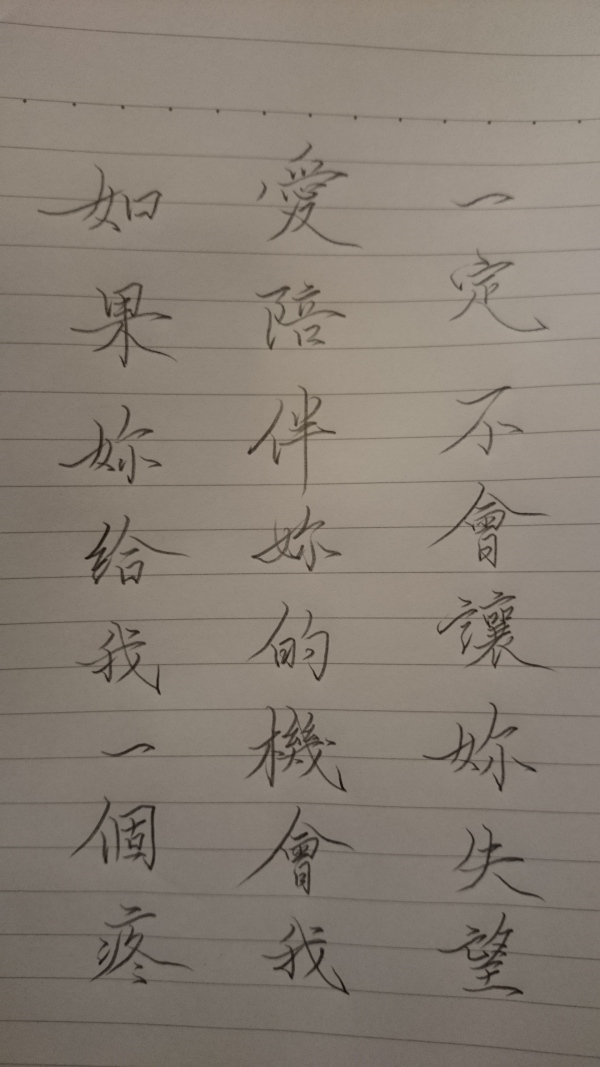 如果妳給我一個疼
愛陪伴妳的機會我
一定不會讓妳失望